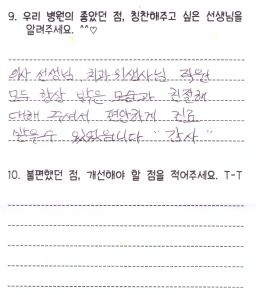 9. 우리 병원의 좋았던 점, 칭찬해주고 싶은 선생님을
알려주세요. ^^♡
의사 선생님, 치과위생사님 직원
모두 항상 밝은 모습과 친절히
대해 주셔서 편안하게 진료
받을수 있었습니다 "감사"
10. 불편했던 점, 개선해야 할 점을 적어주세요. T-T